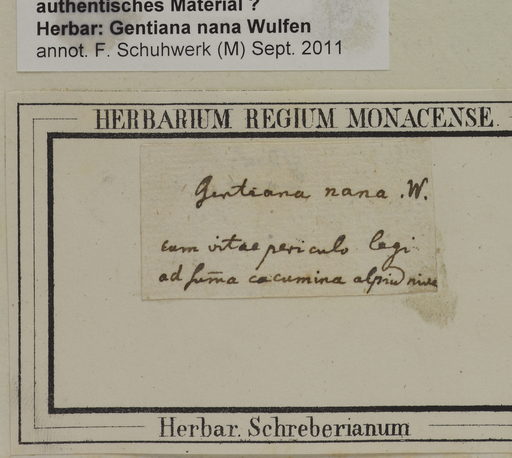 authentisches Material ?
Herbar: Gentiana nana Wulfen
annot. F. Schuhwerk (M) Sept. 2011
HERBARIUM REGIUM MONACENSE.
Gentiana nana . W.
cum vitae periculo legi
ad sum̅a cacumina alpiu̅
Herbar. Schreberianum